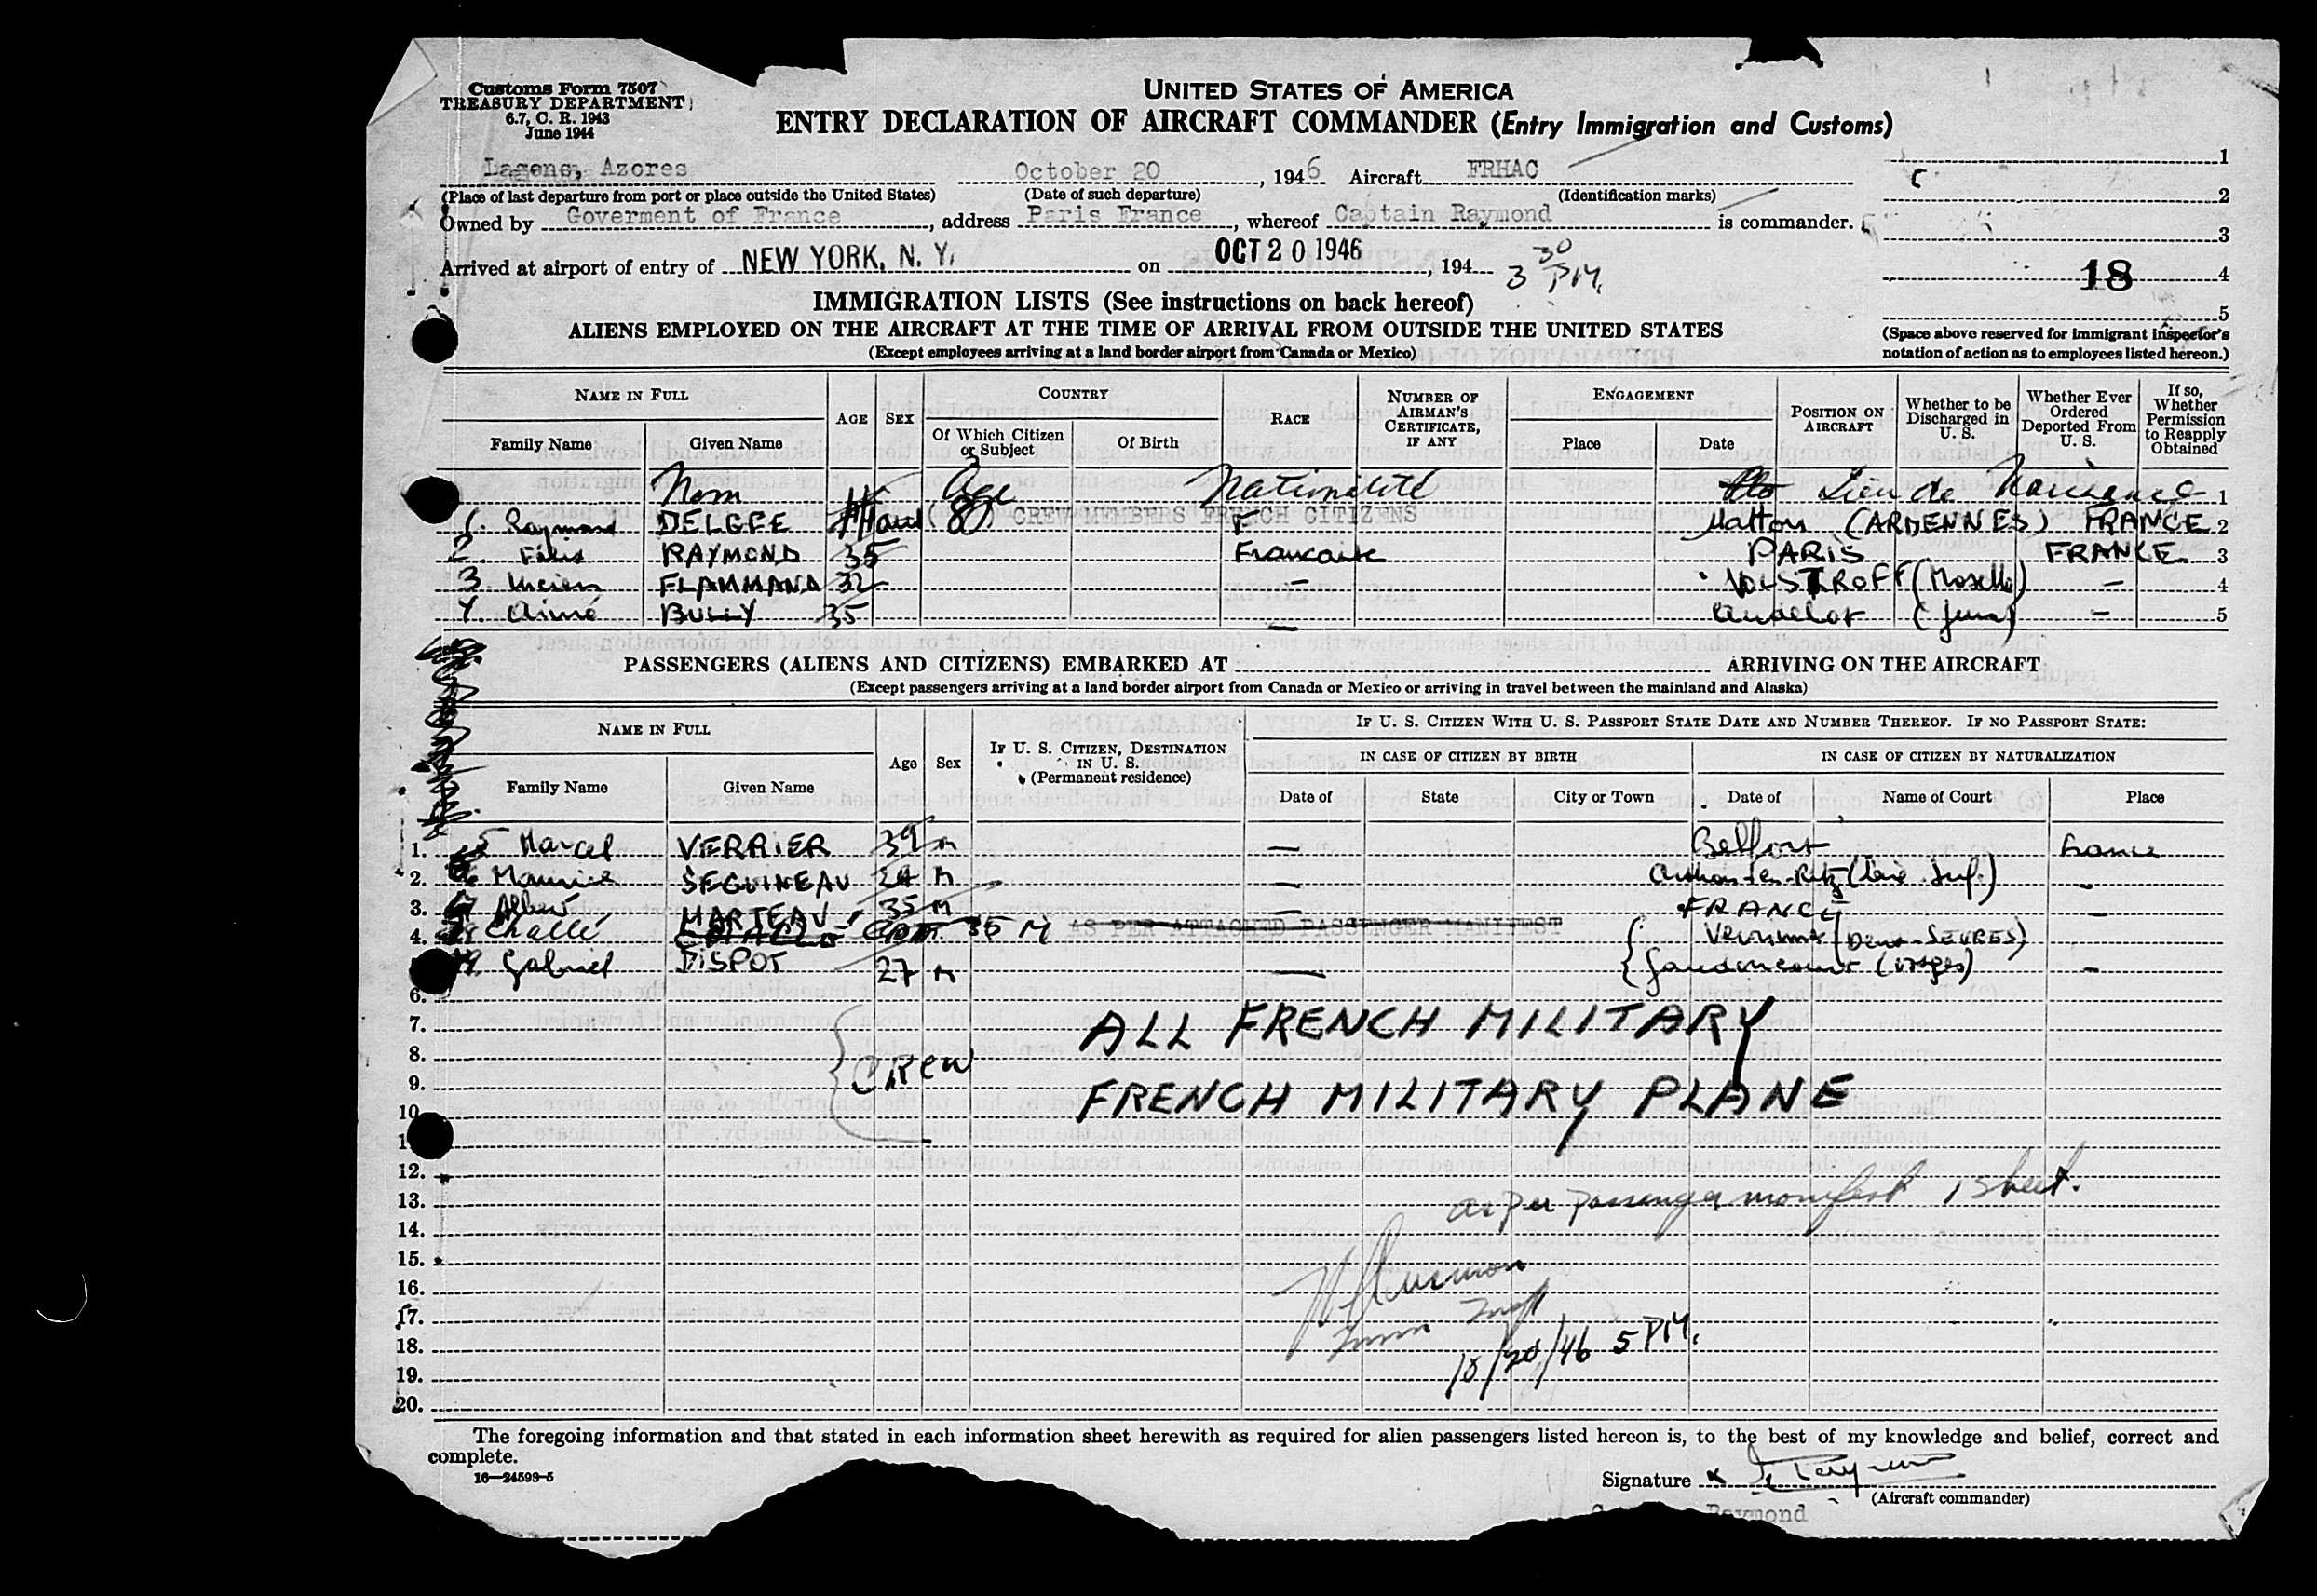 Customs Form 7507
TREASURY DEPARTMENT
6.7, C. R. 1943
June 1944
UNITED STATES OF AMERICA
ENTRY DECLARATION OF AIRCRAFT COMMANDER (Entry Immigration and Customs)
Lagens, Azores October 20, 1946 Aircraft FRHAC
(Place of last departure from port or place outside the United States) (Date of such departure) (Identification marks)
Owned by Goverment of France, address Paris France, whereof Captain Raymond is commander.
Arrived at airport of entry of NEW YORK, N. Y. on OCT 20 1946, 194 3 30 PM.
1
2
3
18 4
5
(Space above reserved for immigrant inspector's notation of action as to employees listed hereon.)
IMMIGRATION LISTS (See instructions on back hereof)
ALIENS EMPLOYED ON THE AIRCRAFT AT THE TIME OF ARRIVAL FROM OUTSIDE THE UNITED STATES
(Except employees arriving at a land border airport from Canada or Mexico)
NAME IN FULL AGE SEX COUNTRY RACE NUMBER OF AIRMAN'S CERTIFICATE, IF ANY ENGAGEMENT POSITION ON AIRCRAFT Whether to be Discharged in U. S. Whether Ever Ordered Deported From U. S. If so, Whether Permission to Reapply Obtained
Family Name Given Name Of Which Citizen or Subject Of Birth Place Date
Nom Age Nationalité Lieu de Naissance 1
1. Raymond DELGEE CREW MEMBERS FRENCH CITIZENS F Matton (ARDENNES) FRANCE 2
2. Félix RAYMOND 35 Française PARIS FRANCE 3
3 Lucien FLAMMAND 32 — VOLSTROFF (Moselle) — 4
4. Aimé BULLY 35 — Andelot (Jura) — 5
PASSENGERS (ALIENS AND CITIZENS) EMBARKED AT ARRIVING ON THE AIRCRAFT
(Except passengers arriving at a land border airport from Canada or Mexico or arriving in travel between the mainland and Alaska)
NAME IN FULL Age Sex IF U. S. CITIZEN, DESTINATION IN U. S. (Permanent residence) IF U. S. CITIZEN WITH U. S. PASSPORT STATE DATE AND NUMBER THEREOF. IF NO PASSPORT STATE:
IN CASE OF CITIZEN BY BIRTH IN CASE OF CITIZEN BY NATURALIZATION
Family Name Given Name Date of State City or Town Date of Name of Court Place
1. 5 Marcel VERRIER 39 M — Belfort France
2. Maurice SEGUINEAU 24 M — -
3. Albert MARTEAU 35 M — FRANCE -
4. Challe 35 M AS PER ATTACHED PASSENGER MANIFEST (Deux-SEVRES)
9 Gabriel DISPOT 27 M — (Vosges) -
6.
7. ALL FRENCH MILITARY
8. CREW
9. FRENCH MILITARY PLANE
10.
12.
13. as per passenger manifest 1 sheet.
14.
15.
16.
17.
18. 10/20/46 5 PM.
19.
20.
The foregoing information and that stated in each information sheet herewith as required for alien passengers listed hereon is, to the best of my knowledge and belief, correct and
complete.
16—24599-5
Signature x
(Aircraft commander)
Raymond